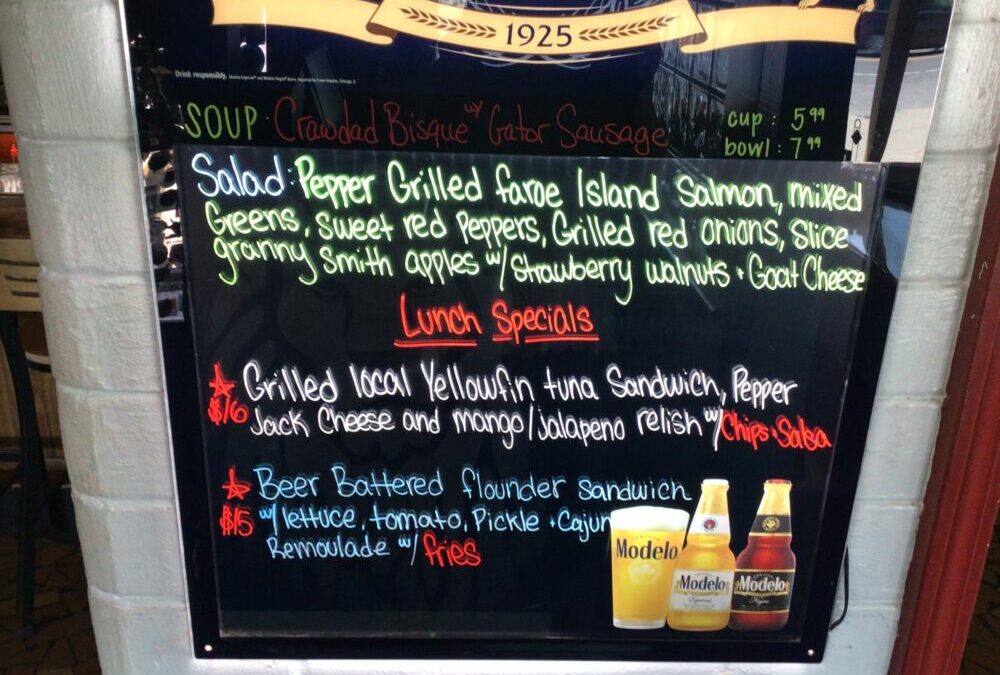 1925
Drink responsibly.
SOUP : Crawdad Bisque w/ Gator Sausage
cup : 5 99
bowl : 7 99
Salad : Pepper Grilled faroe Island Salmon, mixed
Greens, sweet red Peppers, Grilled red onions, Slice
granny Smith apples w/ Strawberry walnuts + Goat Cheese
Lunch Specials
Grilled local Yellowfin tuna Sandwich, Pepper
$16 Jack Cheese and mango/jalapeno relish w/ Chips + Salsa
Beer Battered flounder Sandwich
$15 w/ lettuce, tomato, Pickle + Cajun
Remoulade w/ fries
Modelo
Modelo
Especial
Modelo
Negra